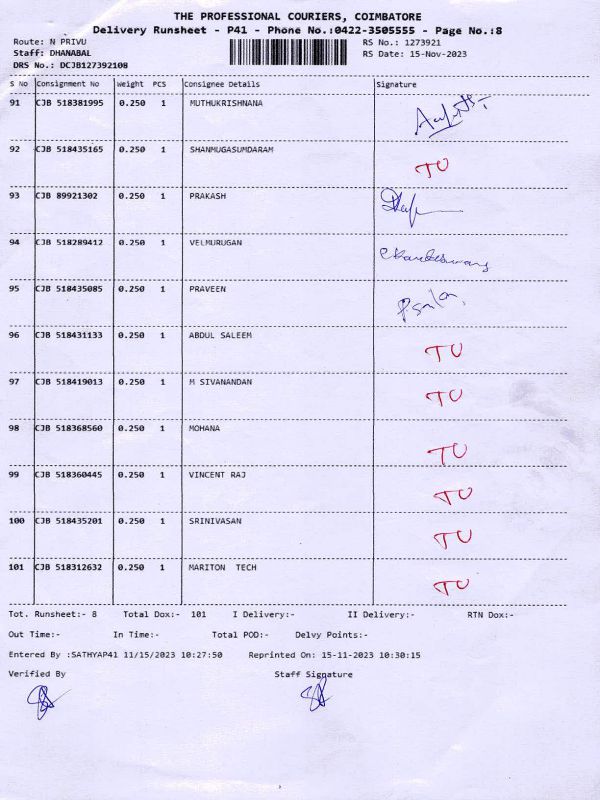 THE PROFESSIONAL COURIERS, COIMBATORE
Delivery Runsheet - P41 - Phone No.:0422-3505555 - Page No.:8
Route: N PRIVU RS No.: 1273921
Staff: DHANABAL RS Date: 15-Nov-2023
DRS No.: DCJB127392108
S No Consignment No Weight PCS Consignee Details Signature
91 CJB 518381995 0.250 1 MUTHUKRISHNANA
92 CJB 518435165 0.250 1 SHANMUGASUMDARAM TU
93 CJB 89921302 0.250 1 PRAKASH
94 CJB 518289412 0.250 1 VELMURUGAN
95 CJB 518435085 0.250 1 PRAVEEN
96 CJB 518431133 0.250 1 ABDUL SALEEM TU
97 CJB 518419013 0.250 1 M SIVANANDAN TU
98 CJB 518368560 0.250 1 MOHANA TU
99 CJB 518360445 0.250 1 VINCENT RAJ TU
100 CJB 518435201 0.250 1 SRINIVASAN TU
101 CJB 518312632 0.250 1 MARITON TECH TU
Tot. Runsheet:- 8 Total Dox:- 101 I Delivery:- II Delivery:- RTN Dox:-
Out Time:- In Time:- Total POD:- Delvy Points:-
Entered By :SATHYAP41 11/15/2023 10:27:50 Reprinted On: 15-11-2023 10:30:15
Verified By Staff Signature